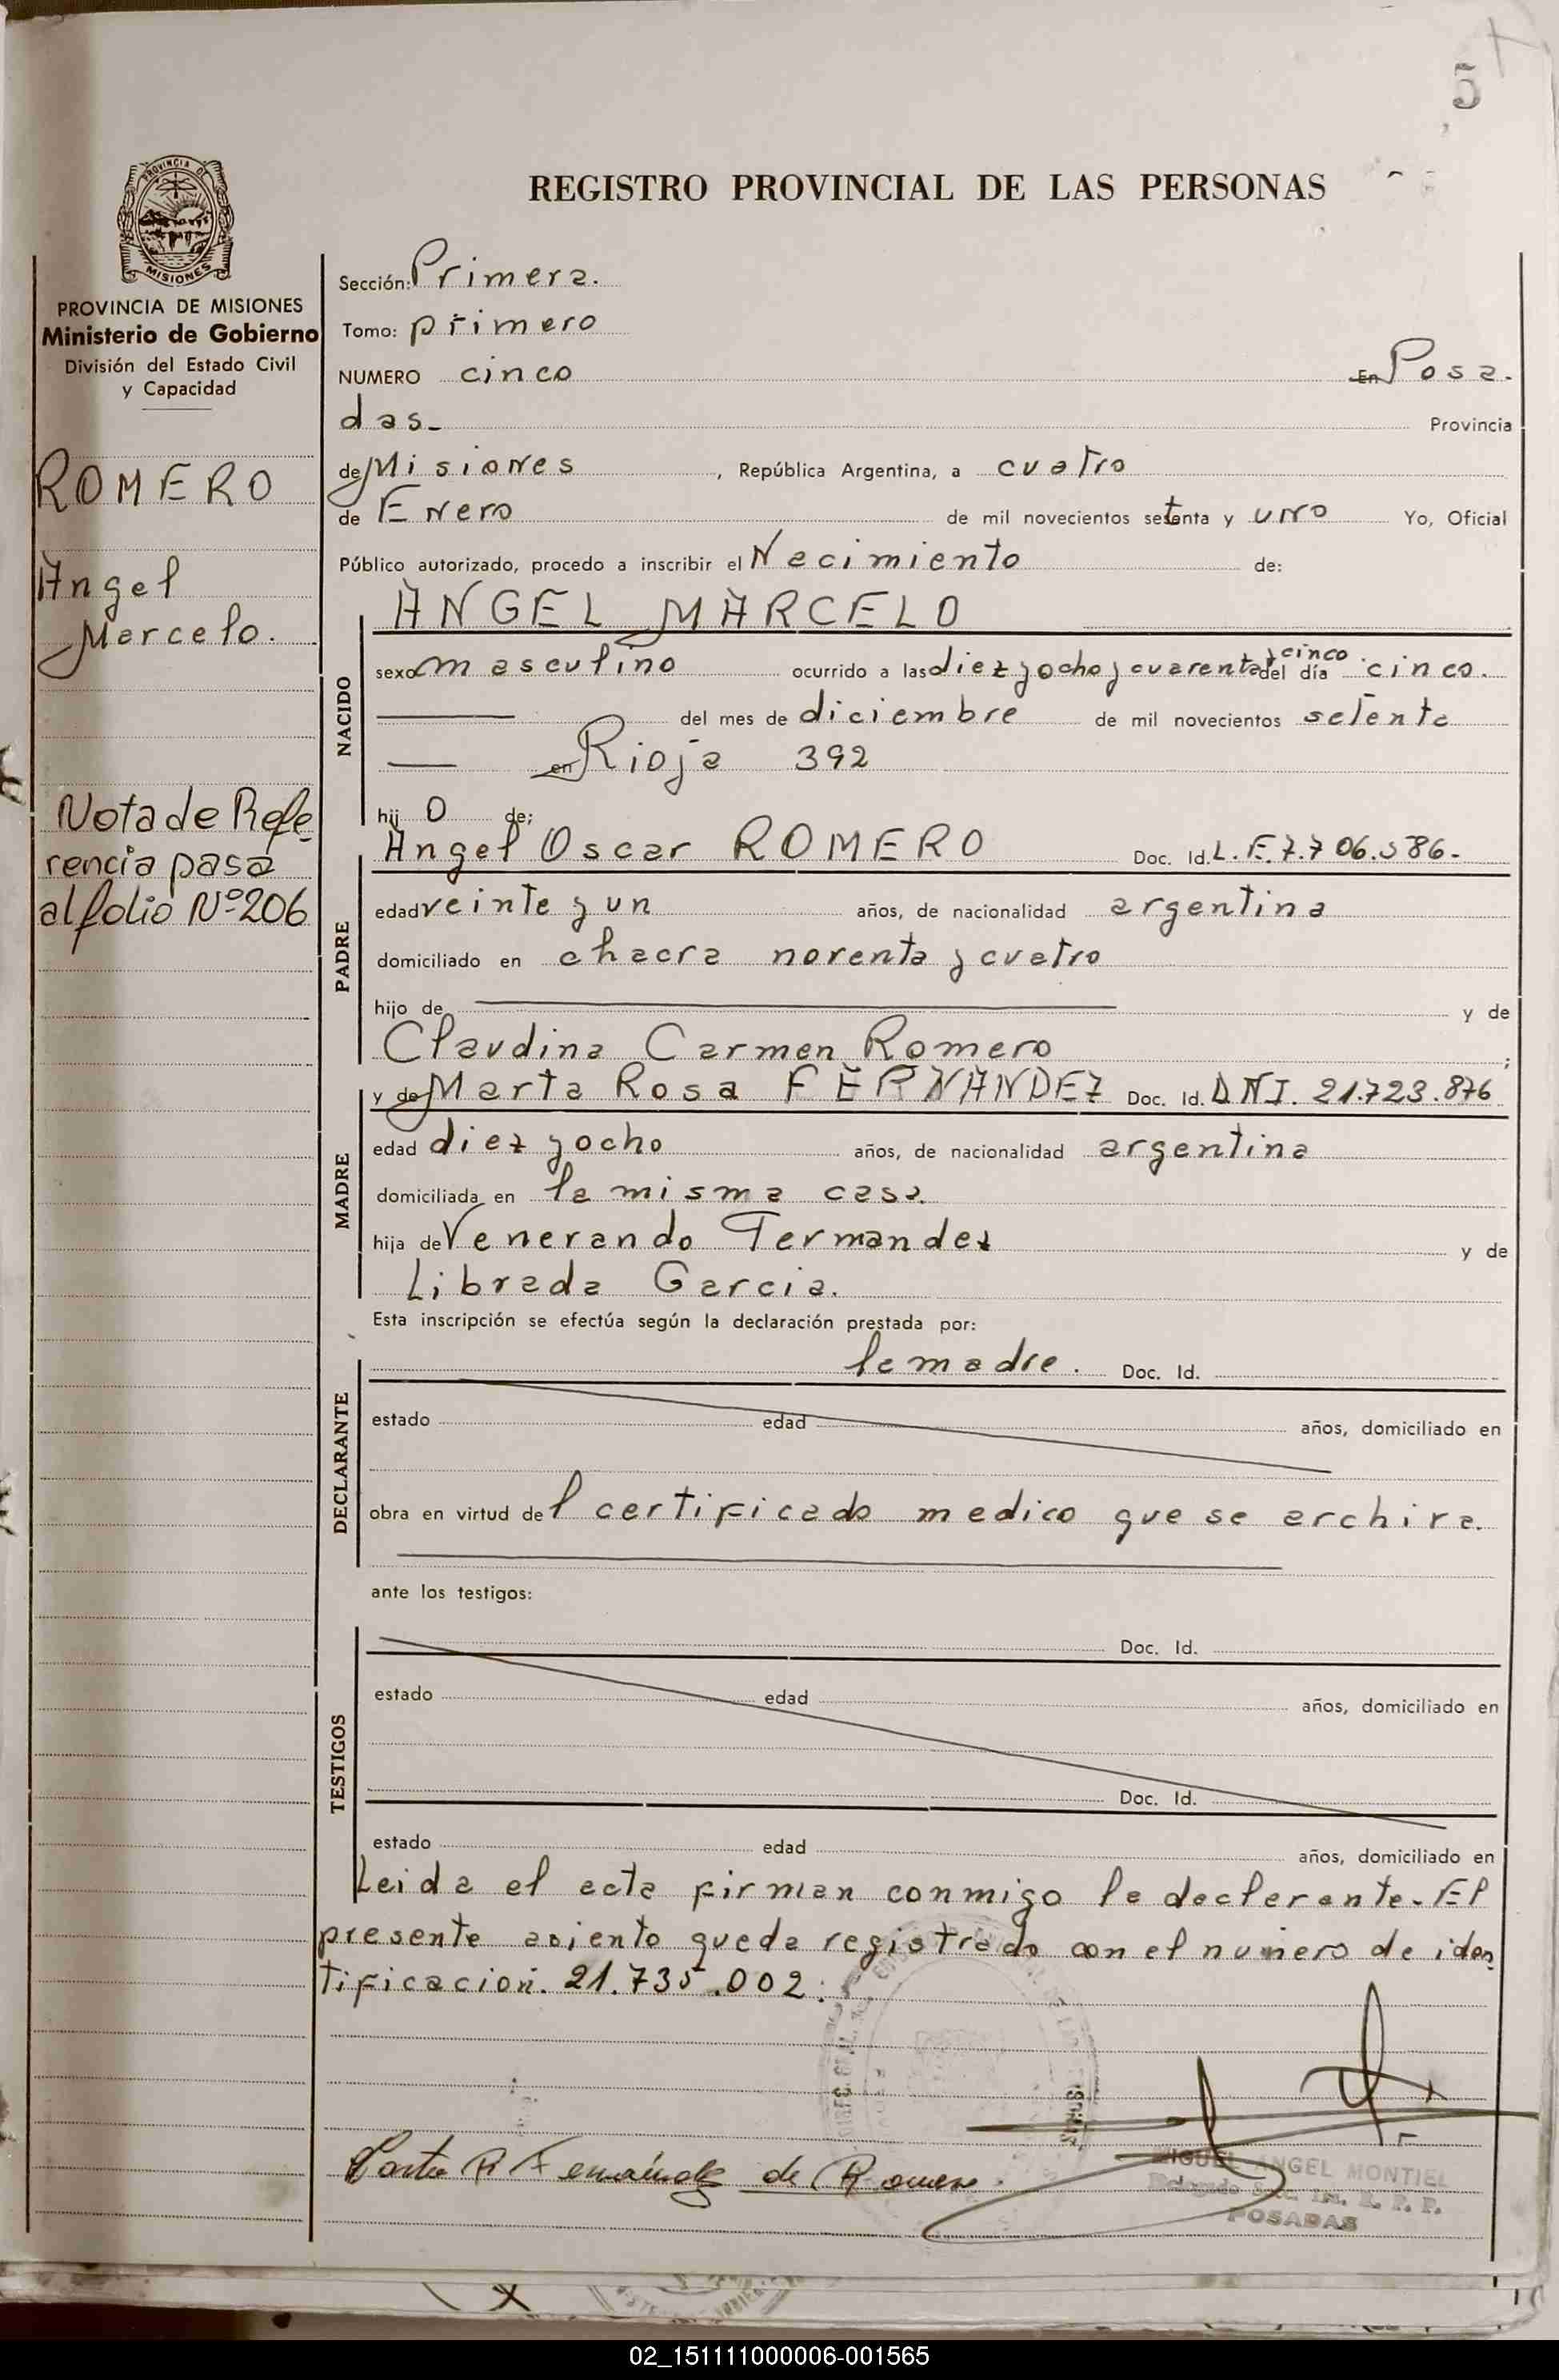 5
REGISTRO PROVINCIAL DE LAS PERSONAS
PROVINCIA DE
MISIONES
PROVINCIA DE MISIONES
Ministerio de Gobierno
División del Estado Civil
y Capacidad
ROMERO
Angel
Marcelo.
Nota de Refe-
rencia pasa
al folio Nº 206
Sección: Primera.
Tomo: primero
NUMERO cinco En Posa-
das. Provincia
de Misiones , República Argentina, a cuatro
de Enero de mil novecientos setenta y uno Yo, Oficial
Público autorizado, procedo a inscribir el Nacimiento de:
NACIDO
ANGEL MARCELO
sexo masculino ocurrido a las diez y ocho y cuarenta y cinco del día cinco.
del mes de diciembre de mil novecientos setenta
en Rioja 392
hij o de:
PADRE
Angel Oscar ROMERO Doc. Id. L.E. 7.706.586.
edad veinte y un años, de nacionalidad argentina
domiciliado en chacra noventa y cuatro
hijo de y de
Claudina Carmen Romero ;
MADRE
y de Marta Rosa FERNANDEZ Doc. Id. DNI. 21.723.876
edad diez y ocho años, de nacionalidad argentina
domiciliada en la misma casa.
hija de Venerando Fernandez y de
Librada Garcia.
Esta inscripción se efectúa según la declaración prestada por:
DECLARANTE
la madre. Doc. Id.
estado edad años, domiciliado en
obra en virtud de l certificado medico que se archiva.
ante los testigos:
TESTIGOS
Doc. Id.
estado edad años, domiciliado en
Doc. Id.
estado edad años, domiciliado en
Leida el acta firman conmigo la declarante. El
presente asiento queda registrado con el numero de iden
tificacion. 21.735.002.
Marta R Fernández de Romero.
MIGUEL ANGEL MONTIEL
Delegado
R. P. P.
POSADAS
02_151111000006-001565